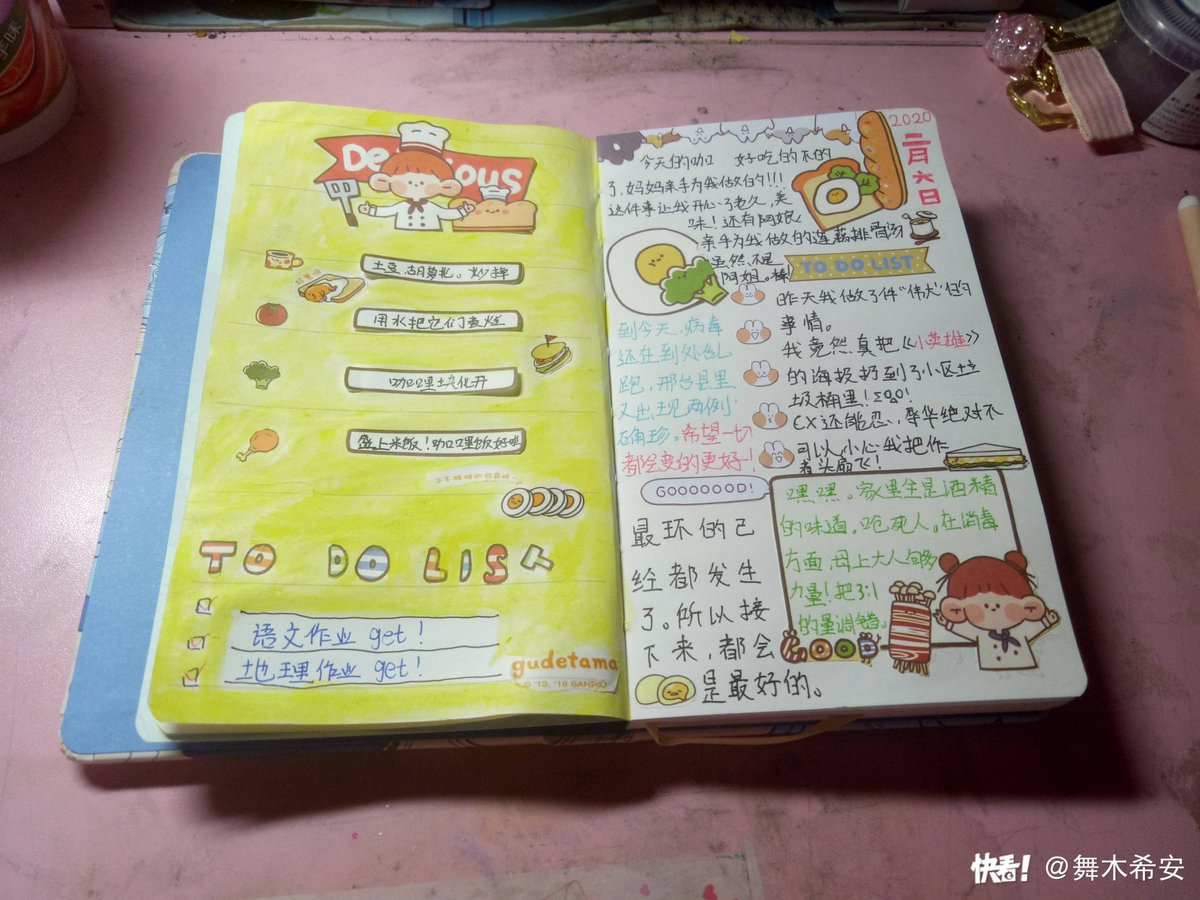 Delicious
土豆.胡萝卜。炒拌
用水把它们煮烂
咖喱块化开
盛上米饭！咖喱饭好啦
TO DO LIST
语文作业 get！
地理作业 get！
gudetama
2020
二月六日
今天的咖 好吃的不的
了,妈妈亲手为我做的!!!
这件事让我开心了老久,美
味！还有阿娘
亲手为我做的莲藕排骨汤
虽然不是
阿姐。棒
TO DO LIST
昨天我做了件“伟大”的
事情。
我竟然真把《小英雄》
的海报扔到了小区垃
圾桶里！
CX还能忍,李华绝对不
可以,小心我把作
者头扇飞！
到今天,病毒
还在到处乱
跑,邢台县里
又出现两例
确珍。希望一切
都会变的更好！
GOOOOOOD!
最坏的已
经都发生
了。所以接
下来,都会
是最好的。
嘿嘿。家里全是酒精
的味道。呛死人。在消毒
方面,母上大人够
力量！把3:1
的量调错。
GOOD
快看！@舞木希安